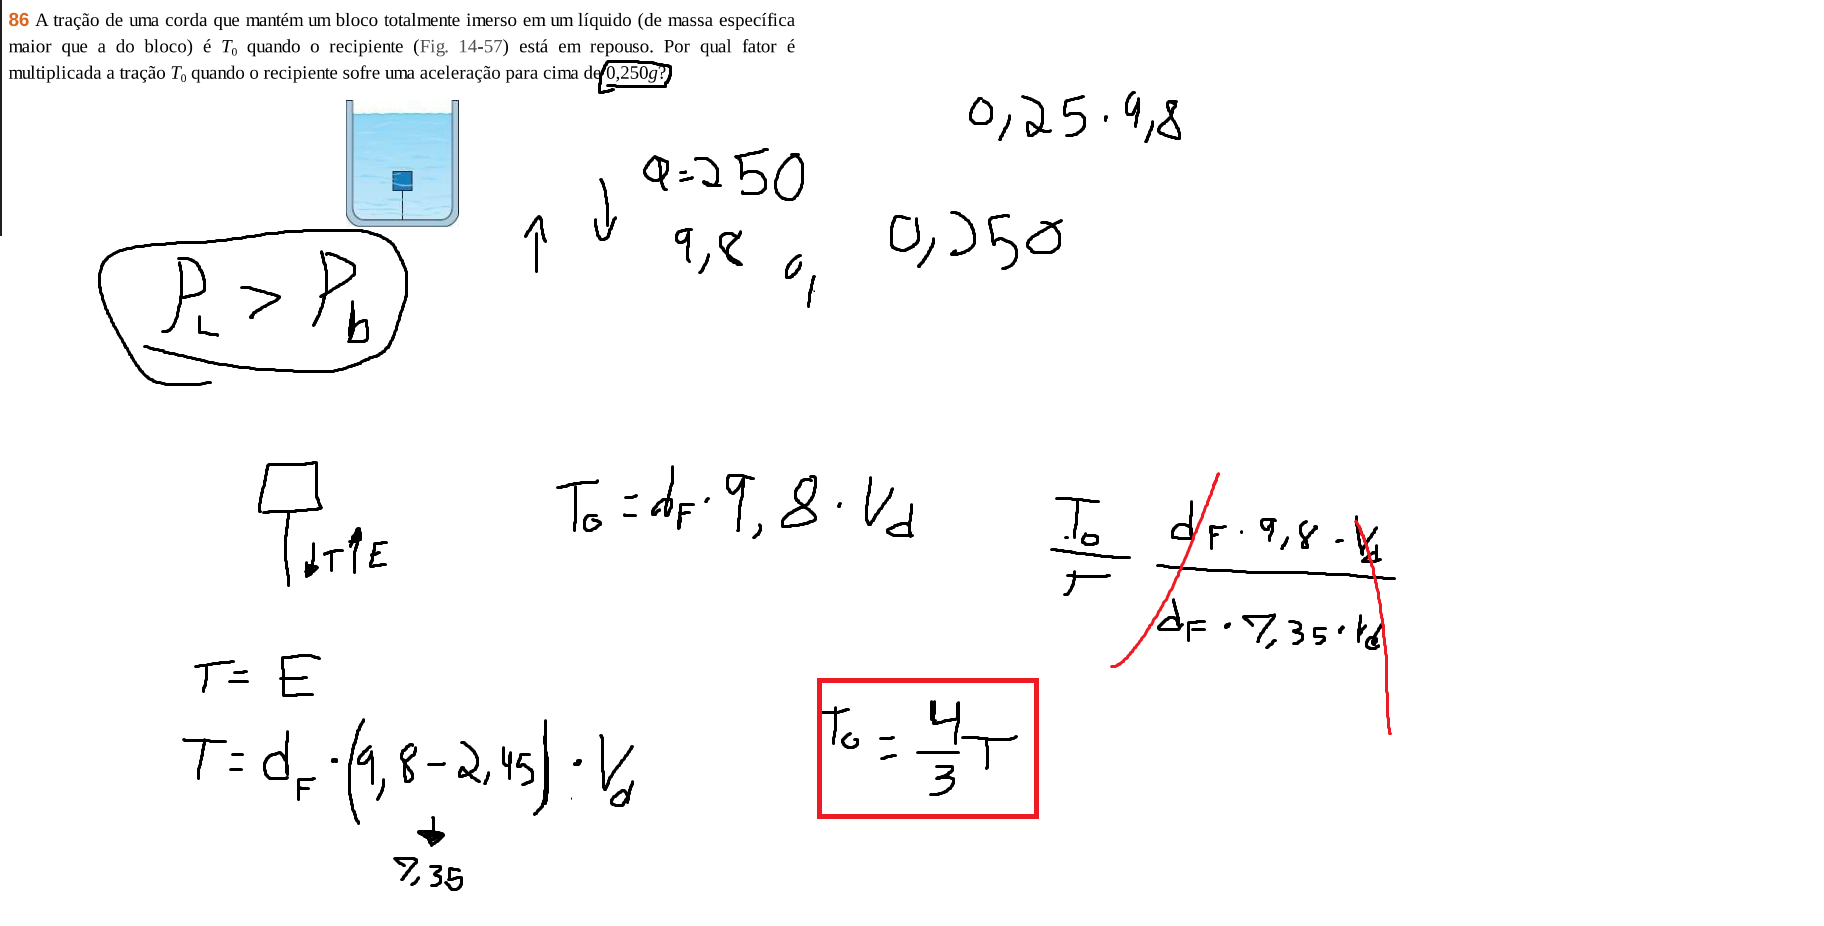 86 A tração de uma corda que mantém um bloco totalmente imerso em um líquido (de massa específica
maior que a do bloco) é T₀ quando o recipiente (Fig. 14-57) está em repouso. Por qual fator é
multiplicada a tração T₀ quando o recipiente sofre uma aceleração para cima de 0,250g?
0,25 · 9,8
a = 250
9,8
0,250
P_L > P_b
T E
T₀ = d_F · 9,8 · V_d
T₀ / T
d_F · 9,8 · V_d
d_F · 7,35 · V_d
T = E
T = d_F · (9,8 - 2,45) · V_d
7,35
T₀ = 4/3 T